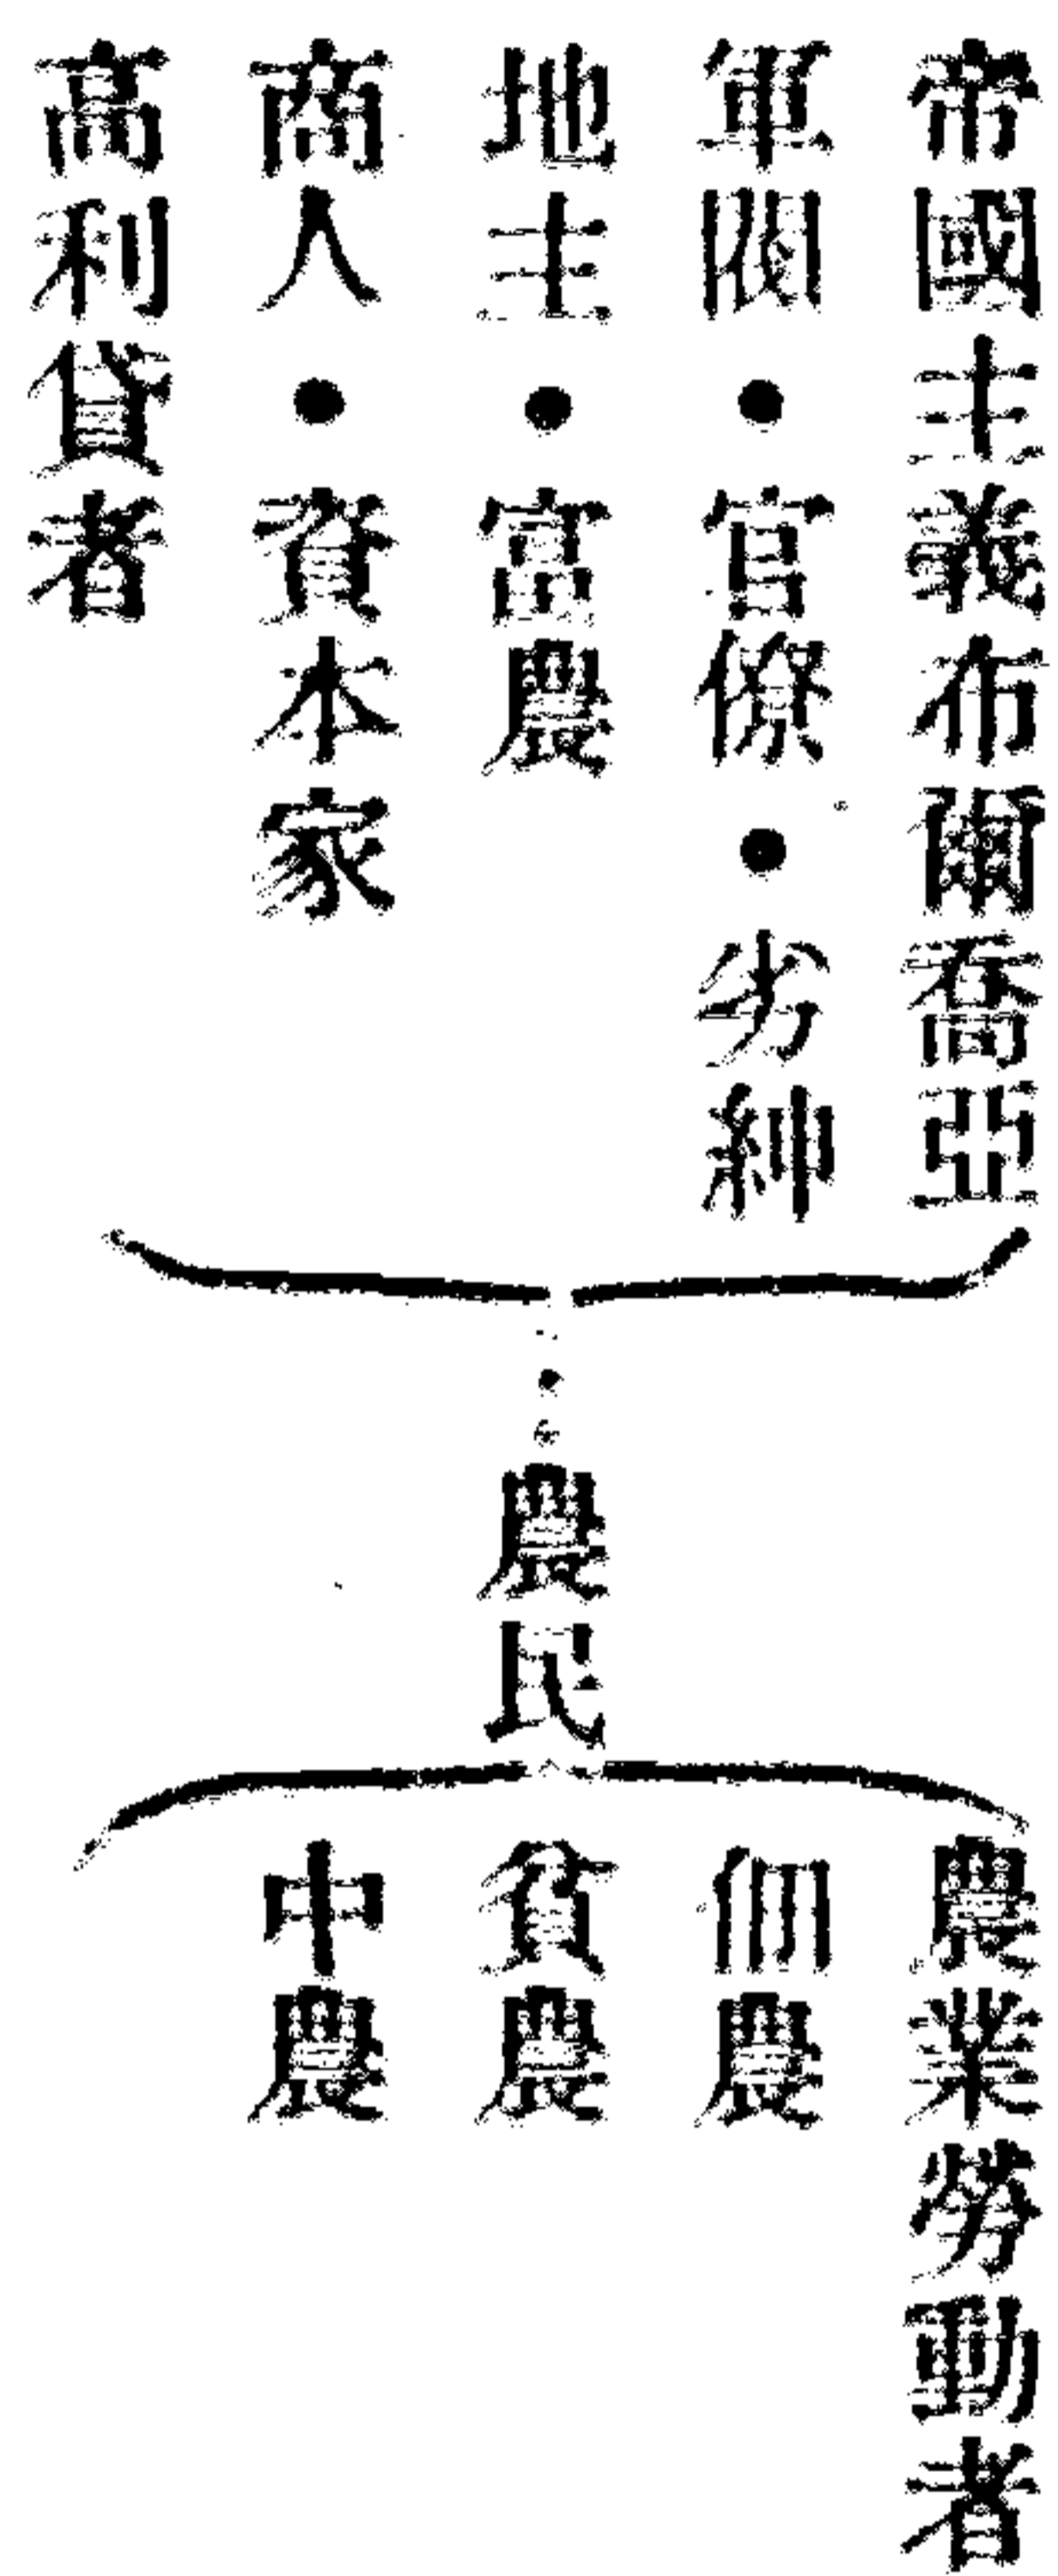 帝國主義布爾喬亞
軍閥●官僚●劣紳
地主●富農
商人●資本家
高利貸者
農民
農業勞動者
佃農
貧農
中農